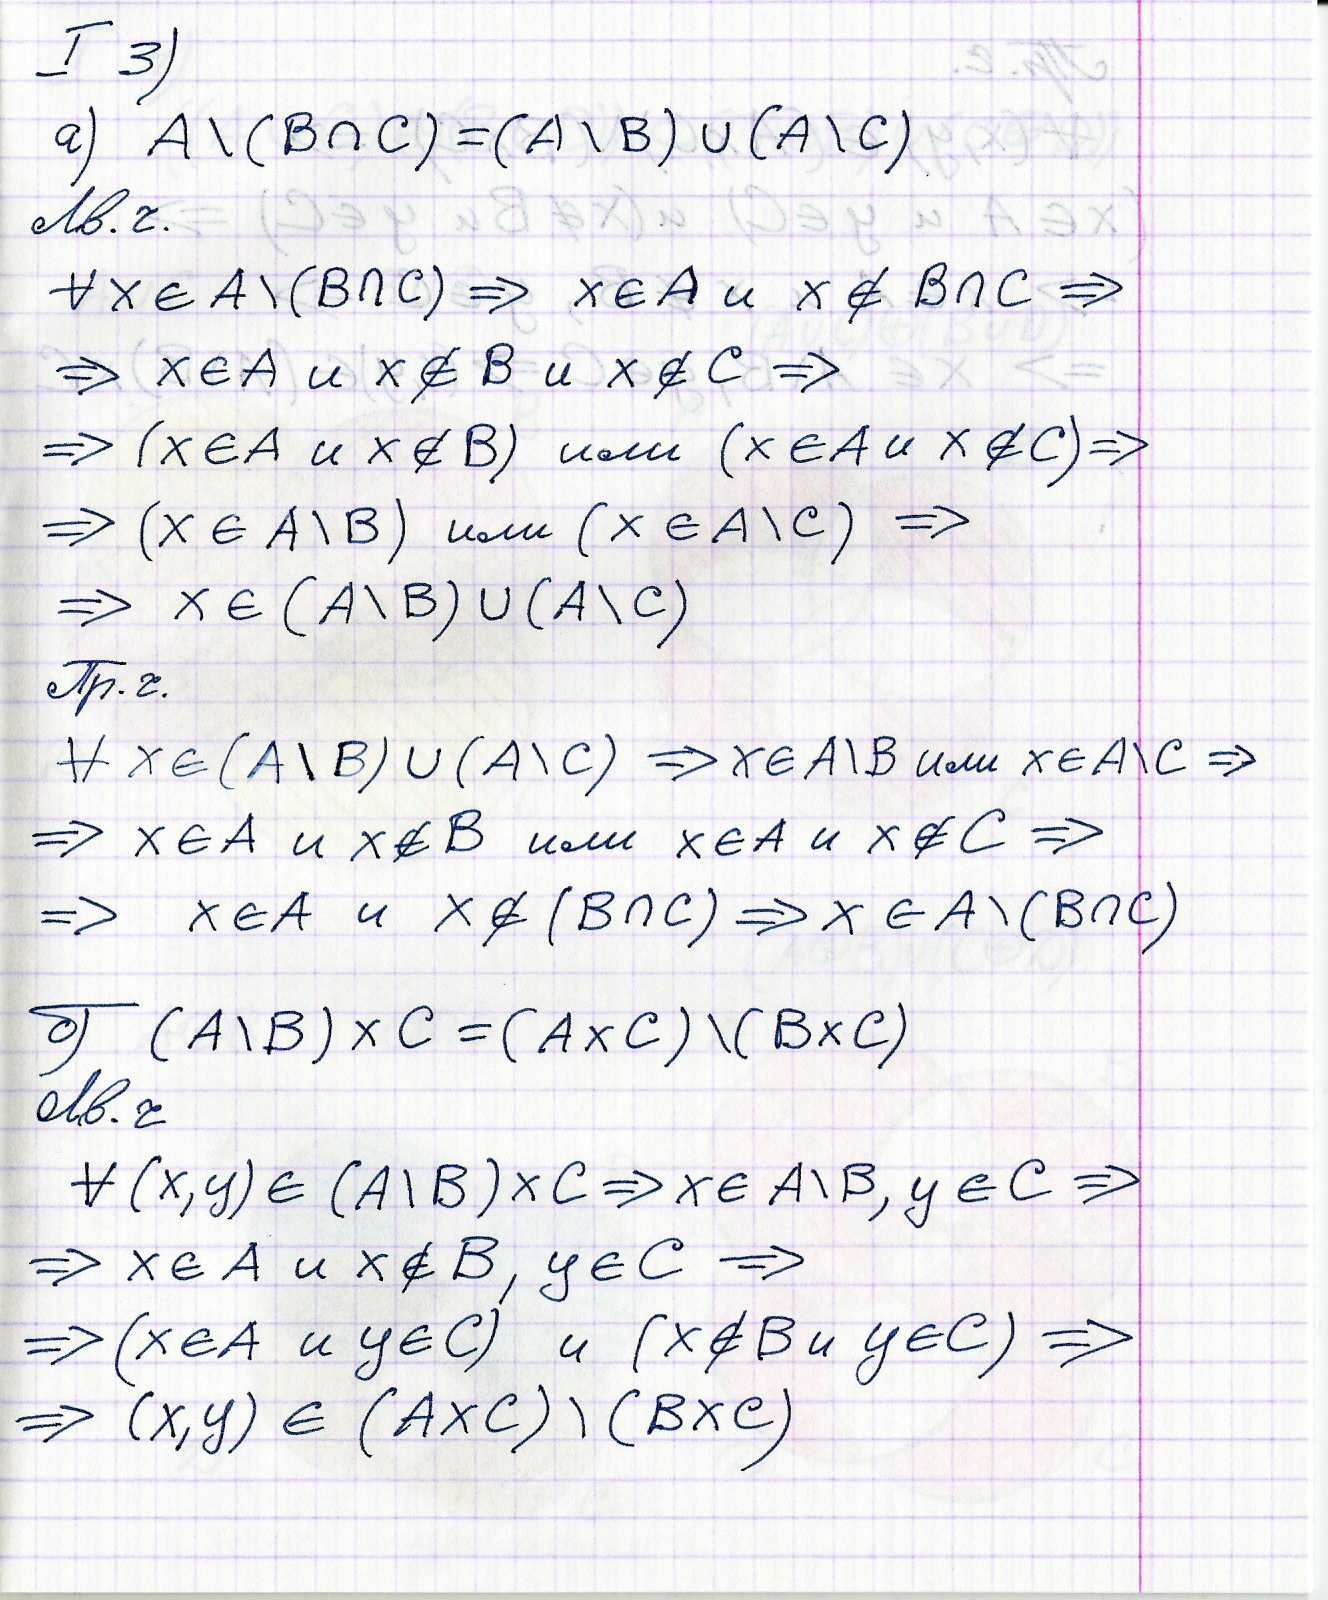 I 3)
а) A\(B∩C)=(A\B)∪(A\C)
Лв.ч.
∀x∈A\(B∩C)⇒ x∈A и x∉B∩C⇒
⇒ x∈A и x∉B и x∉C⇒
⇒(x∈A и x∉B) или (x∈A и x∉C)⇒
⇒(x∈A\B) или (x∈A\C) ⇒
⇒ x∈(A\B)∪(A\C)
Пр.ч.
∀x∈(A\B)∪(A\C) ⇒x∈A\B или x∈A\C⇒
⇒ x∈A и x∉B или x∈A и x∉C⇒
⇒ x∈A и x∉(B∩C)⇒x∈A\(B∩C)
б) (A\B)×C=(A×C)\(B×C)
Лв.ч
∀(x,y)∈(A\B)×C⇒x∈A\B, y∈C⇒
⇒ x∈A и x∉B, y∈C ⇒
⇒(x∈A и y∈C) и (x∉B и y∈C)⇒
⇒ (x,y)∈(A×C)\(B×C)